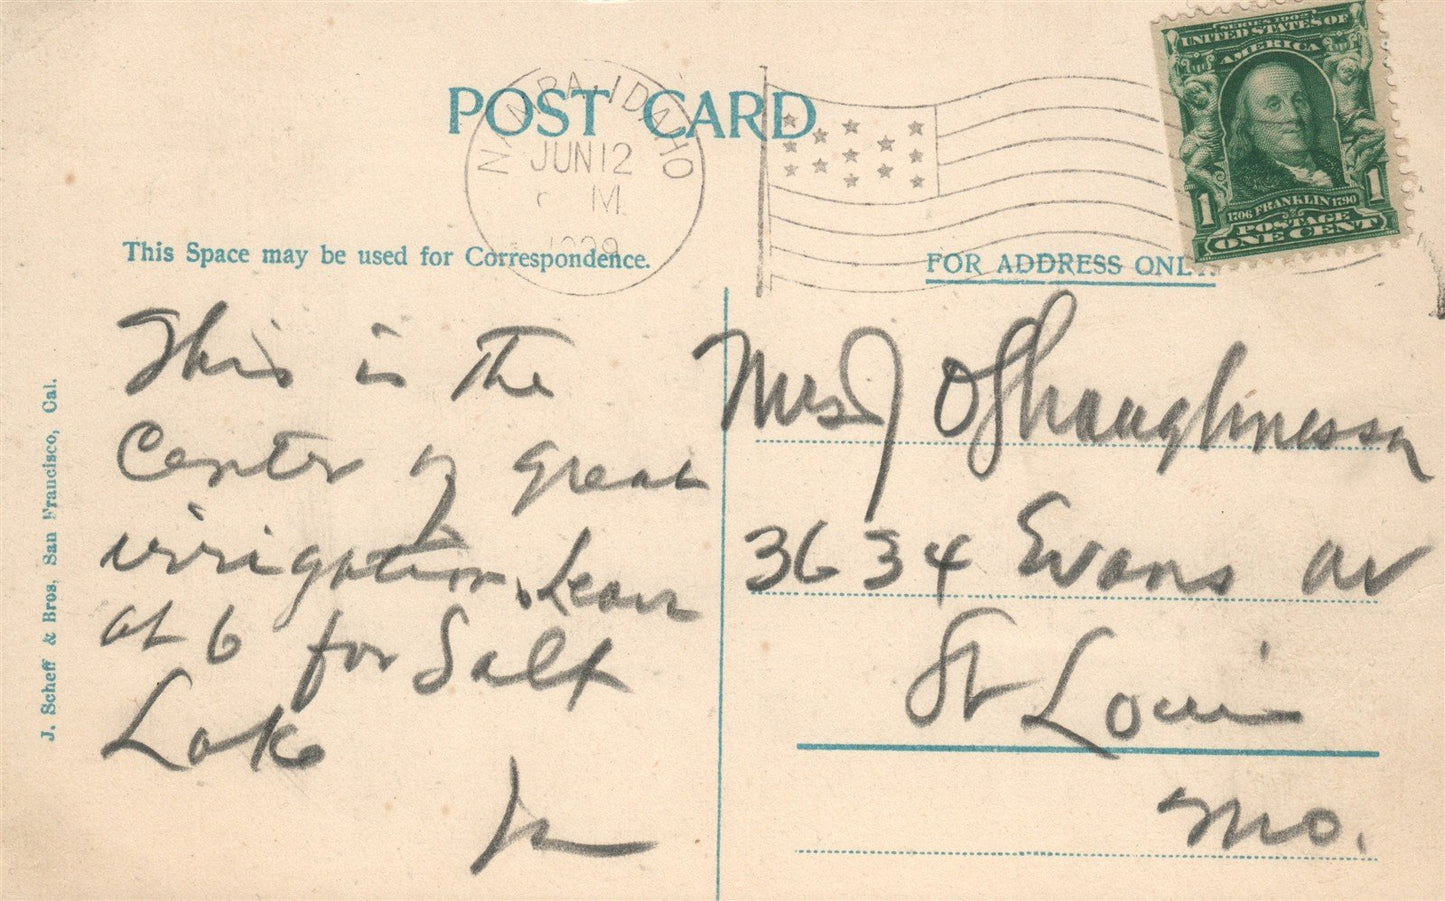 POST CARD
NAMPA, IDAHO
JUN 12
M.
SERIES 1902
UNITED STATES OF
AMERICA
1706 FRANKLIN 1790
1 1
POSTAGE
ONE CENT
This Space may be used for Correspondence.
FOR ADDRESS ONLY.
This is the
Center of great
irrigation. Leave
at 6 for Salt
Lake
Mrs J OShaughnessy
3634 Evans av
St Louis
Mo.
J. Scheff & Bros, San Francisco, Cal.